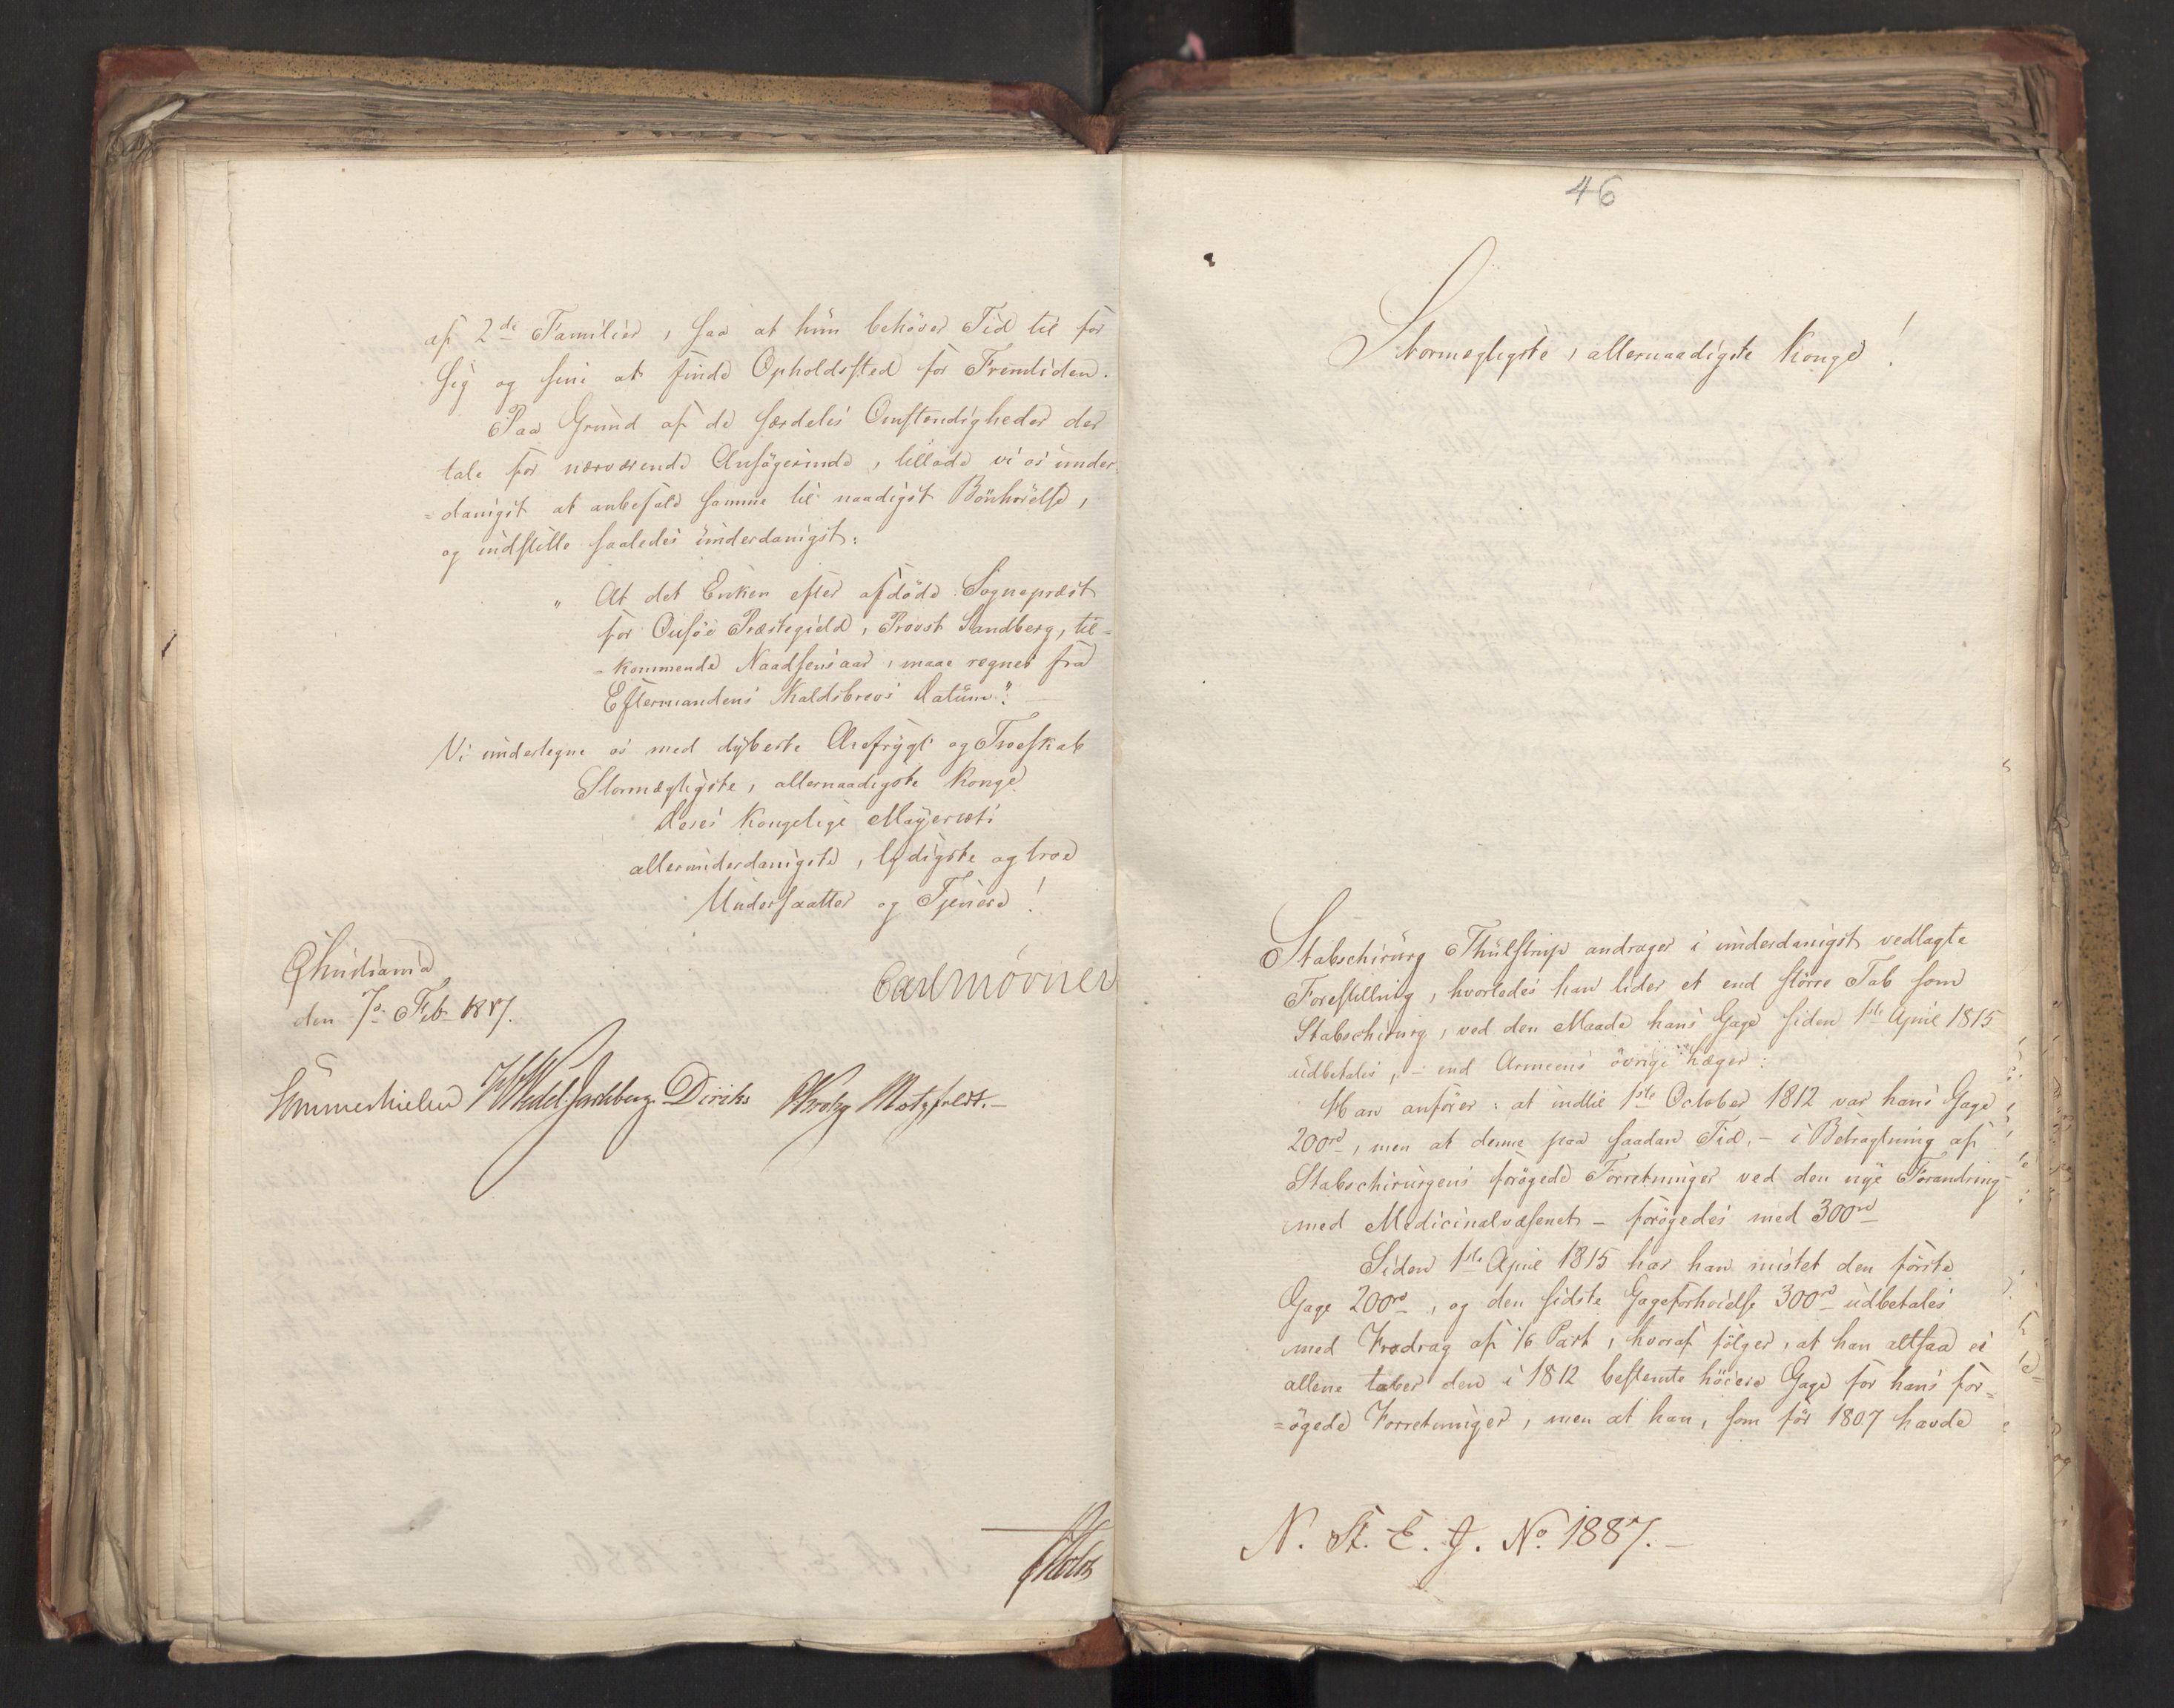 af 2de Familier, saa at hun behøver Tid til for
sig og sine at finde Opholdssted for Fremtiden.
Paa Grund af de særdeles Omstendigheder der
tale for nærværende Ansögerinde, tillade vi os under-
=danigst at anbefale samme til naadigst Bönhörelse,
og indstille saaledes underdanigst:
„ At det Enken efter afdöde Sognepræst
for Præstegield, Provst Sandberg, til=
=kommende Naadsensaar, maae regnes fra
Eftermandens Kaldsbrevs Datum".
Vi undertegne os med dybeste Ærefrygt og Troeskab
Stormægtigste, allernaadigste Konge
Deres Kongelige Majestæts
allerunderdanigste, lydigste og troe
Undersaatter og Tjenere!
Christiania
den 7de Feb 1817.
Carl Mörner
Sommerhielm Wedel Jarlsberg Diriks Krohg Motzfeldt.
Holst
46
Stormægtigste, allernaadigste Konge!
Stabschirurg Thulstrup andrager i underdanigst vedlagte
Forestilling, hvorledes han lider et end större Tab som
Stabschirurg, ved den Maade hans Gage siden 1ste April 1815
udbetales, - end Armeens övrige Læger:
Han anförer: at indtil 1ste October 1812 var hans Gage
200rd, men at denne paa saadan Tid, - i Betragtning af
Stabschirurgens forögede Forretninger ved den nye Forandring
med Medicinalvæsenet - forögedes med 300rd
Siden 1ste April 1815 har han mistet den förste
Gage 200rd, og den sidste Gageforhöielse 300rd udbetales
med Fradrag af 1/6 Part, hvoraf fölger, at han altsaa ei
allene taber den i 1812 bestemte höiere Gage for hans for=
=ögede Forretninger, men at han, som för 1807 havde
N. St. E. J. No. 1887.-